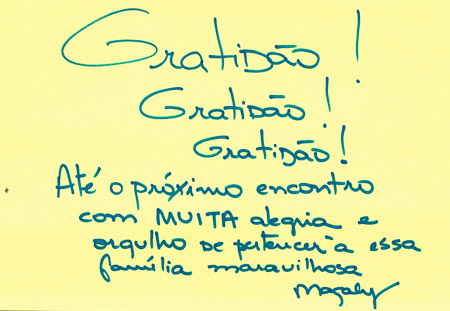 Gratidão!
Gratidão!
Gratidão!
Até o próximo encontro
com MUITA alegria e
orgulho de pertencer a essa
família maravilhosa
Magaly